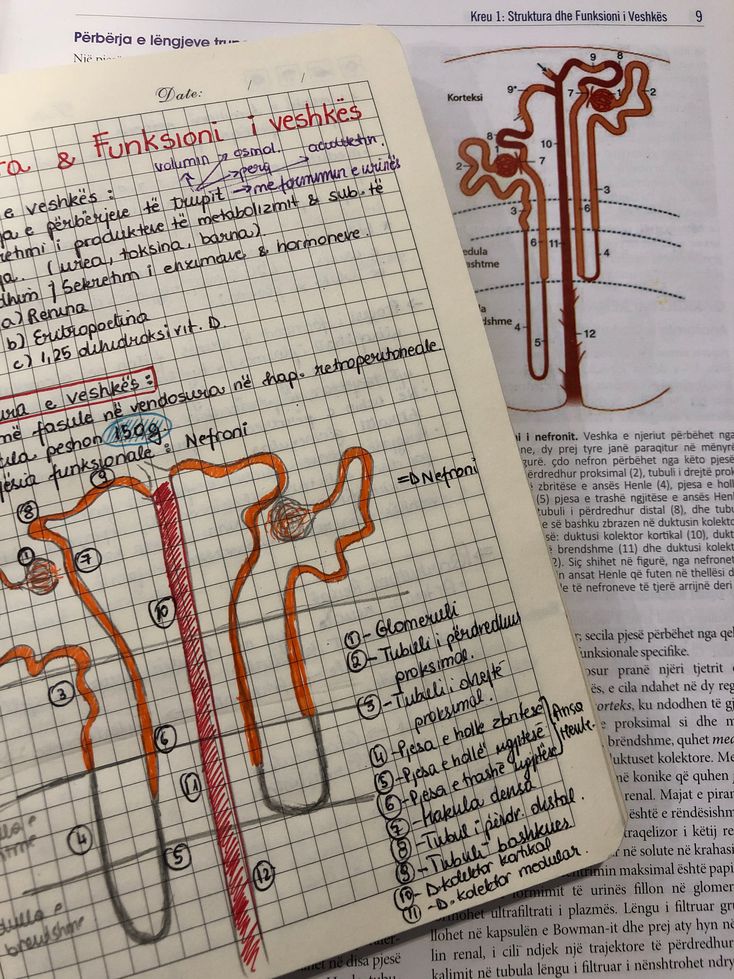 Kreu 1: Struktura dhe Funksioni i Veshkës 9
Përbërja e lëngjeve
Një
Date: / /
& Funksioni i veshkës
volumin osmol. aciditetin.
e veshkës:
e përbërjeve të trupit → me formimin e urinës
i produkteve të metabolizmit & sub. të
(urea, toksina, barna)
Sekretim i enzimave & hormoneve.
a) Renina
b) Eritropoetina
c) 1,25 dihidroksi vit. D.
e veshkës:
fasule në vendosura në hap. retroperitoneale.
peshon 150g
funksionale: Nefroni
=D Nefroni
8
9
1
7
10
3
6
11
4
5
12
① - Glomeruli
② - Tubuli i përdredhur
proksimal.
③ - Tubuli i drejtë
proksimal.
④ - Pjesa e hollë zbritëse
⑤ - Pjesa e hollë ngjitëse
⑥ - Pjesa e trashë ngjitëse
Ansa
Henle.
⑦ - Makula densa
⑧ - Tubul i përdr. distal.
⑨ - Tubuli bashkues
⑩ - D. kolektor kortikal
⑪ - D. kolektor medular.
Korteksi
9
8
9*
7
1
2
8
1
10
2
7
3
3
6
6
11
4
4
5
12
i nefronit. Veshka e njeriut përbëhet nga
ne, dy prej tyre janë paraqitur në mënyrë
gurë. çdo nefron përbëhet nga këto pjesë
proksimal (2), tubuli i drejtë
zbritëse e ansës Henle (4), pjesa e
(5) pjesa e trashë ngjitëse e ansës
tubuli i përdredhur distal (8), dhe
e së bashku zbrazen në duktusin
së: duktusi kolektor kortikal (10),
brendshme (11) dhe duktusi
Siç shihet në figurë, nga
ansat Henle që futen në thellësi
të nefroneve të tjerë arrijnë deri
secila pjesë përbëhet nga
funksionale specifike.
pranë njëri tjetrit
ës, e cila ndahet në dy
korteks, ku ndodhen të
e proksimal si dhe
brëndshme, quhet
duktuset kolektore.
në konike që quhen
renal. Majat e
është e rëndësishme
i këtij
në solute në
maksimal është
të urinës fillon në
ultrafiltrati i plazmës. Lëngu i filtruar
në kapsulën e Bowman-it dhe prej aty hyn në
renal, i cili ndjek një trajektore të përdredhur
në disa pjesë
kalimit në tubula lëngu i filtruar i nënshtrohet